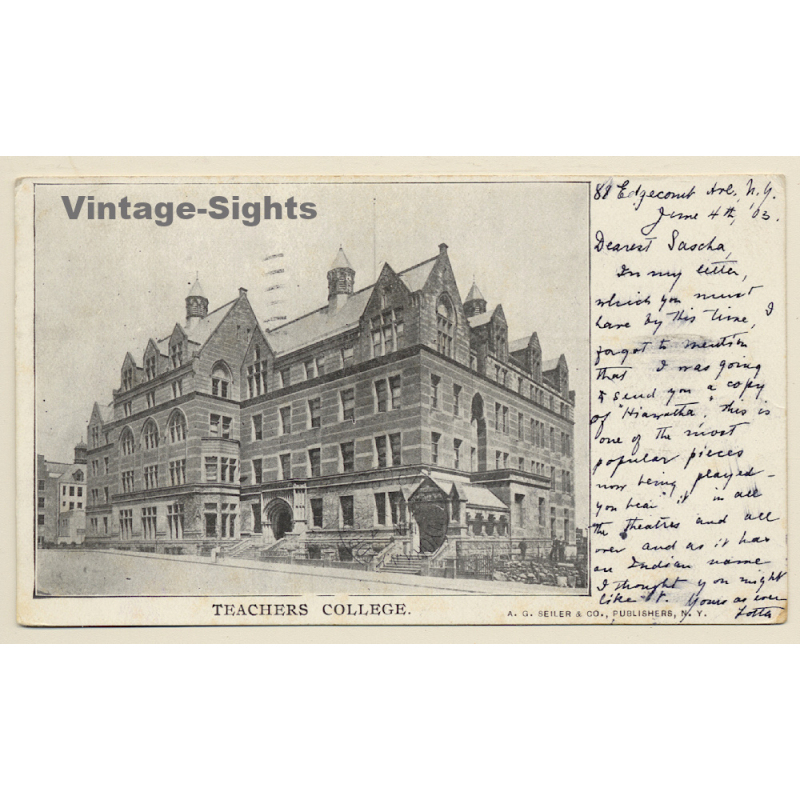 Vintage-Sights
88 Edgecomb Ave, N.Y.
June 4th, '03.
Dearest Sascha,
In my letter,
which you must
have by this time, I
forgot to mention
that I was going
to send you a copy
of "Hiawatha", this is
one of the most
popular pieces
now being played -
you hear it in all
the theatres and all
over and as it has
an Indian name
I thought you might
like it. Yours as ever
Lotta
TEACHERS COLLEGE.
A. G. SEILER & CO., PUBLISHERS, N. Y.